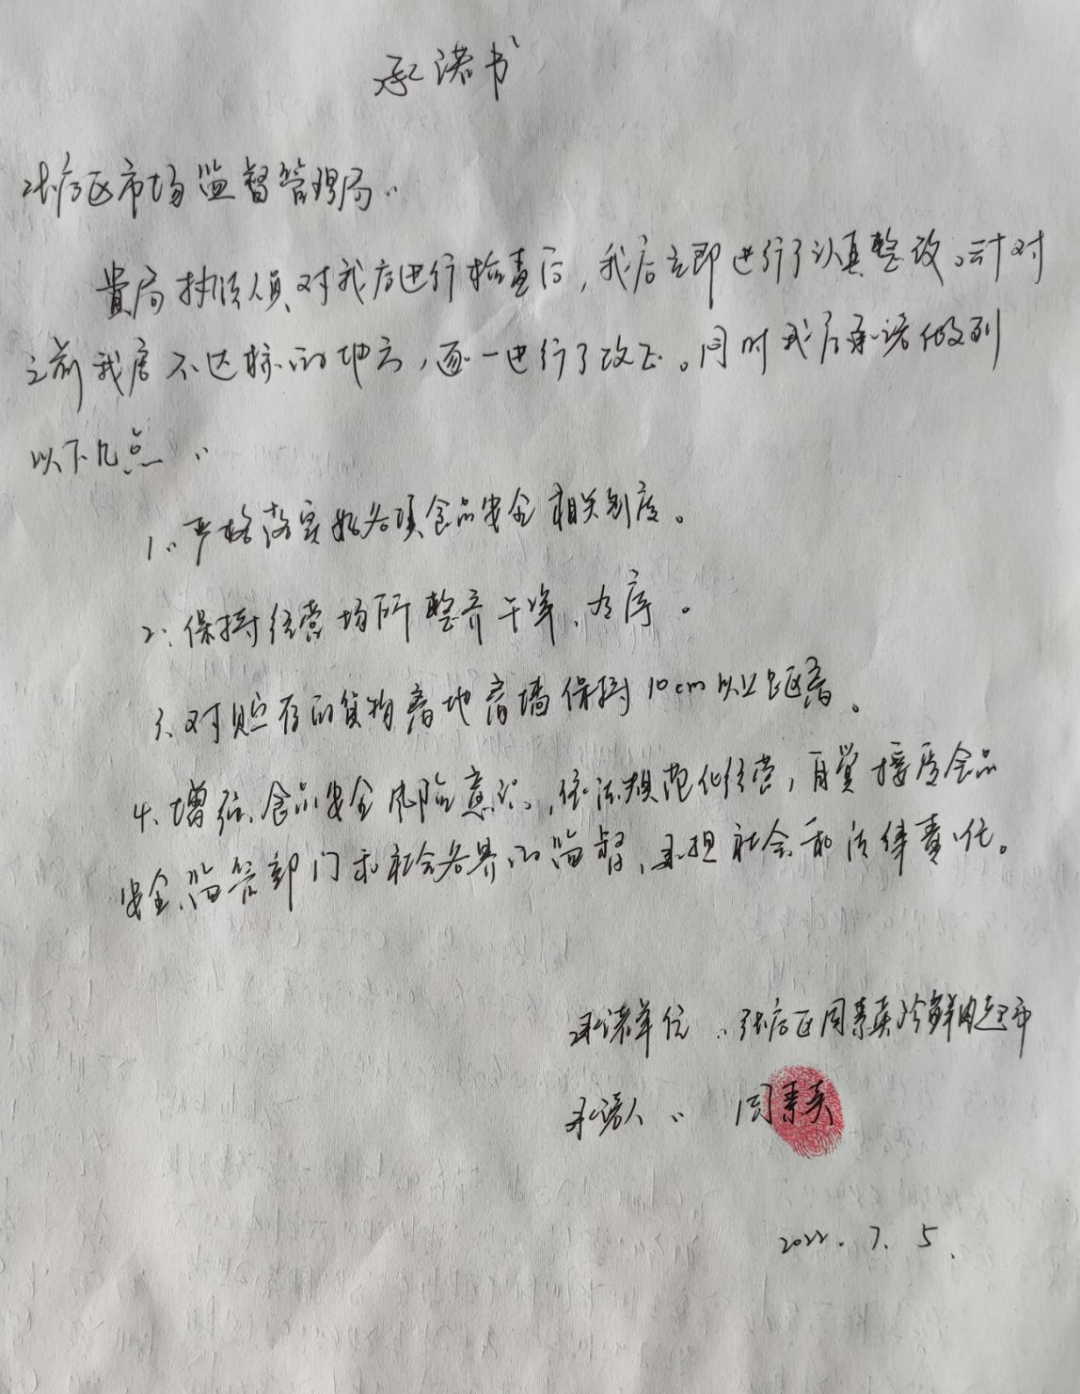 承诺书
张店区市场监督管理局：
贵局执法人员对我店进行检查后，我店立即进行了认真整改。针对
之前我店不达标的地方，逐一进行了改正。同时我店承诺做到
以下几点：
1、严格落实好各项食品安全相关制度。
2、保持经营场所整齐干净、有序。
3、对贮存的货物离地离墙保持10cm以上距离。
4、增强食品安全风险意识，依法规范化经营，自觉接受食品
安全监管部门和社会各界的监督，承担社会和法律责任。
承诺单位：张店区周素英冷鲜肉超市
承诺人：周素英
2022.7.5.